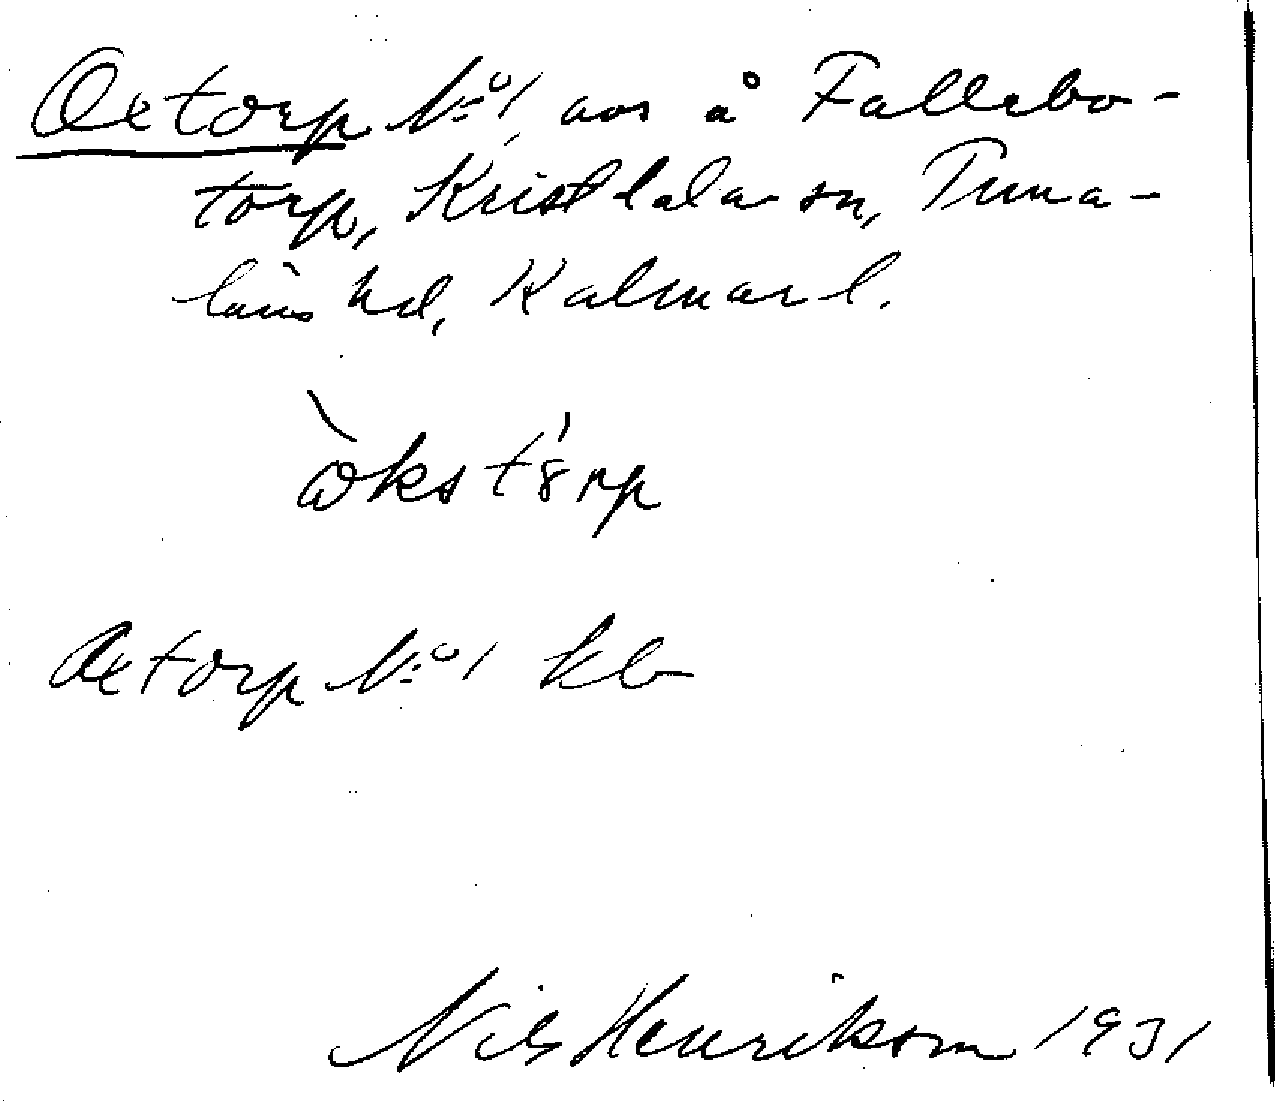 Oxtorp N:o 1, avs å Fallebo-
torp, Kristdala sn, Tuna-
läns hd, Kalmar l.
Oxtorp N:o 1 kb
Nils Henrikson 1931